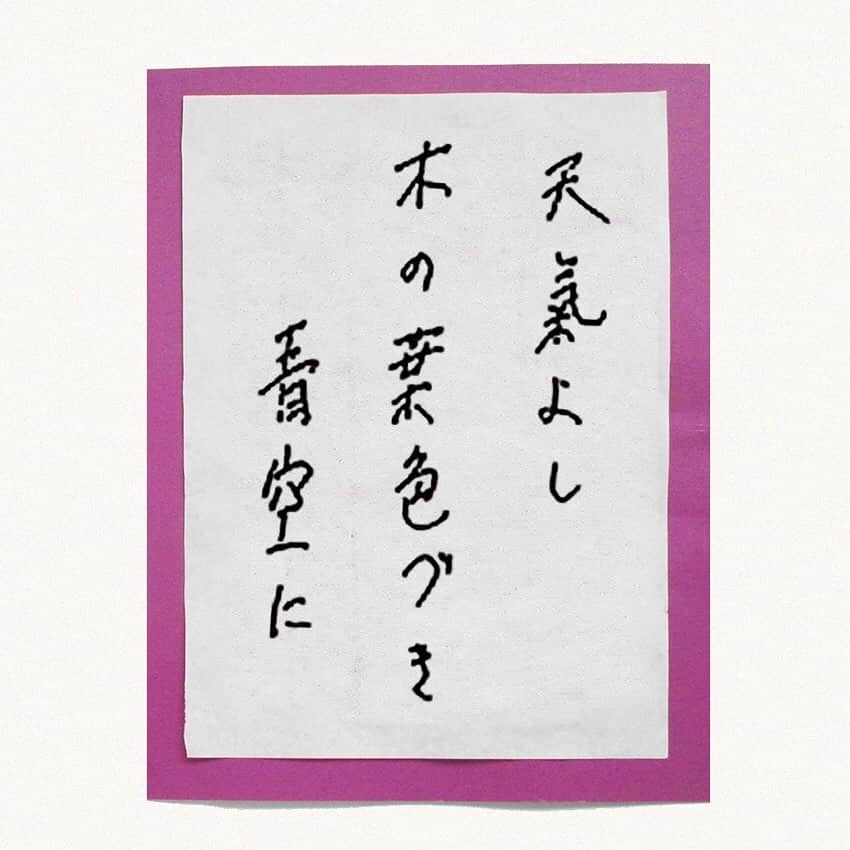 天氣よし
木の葉色づき
青空に